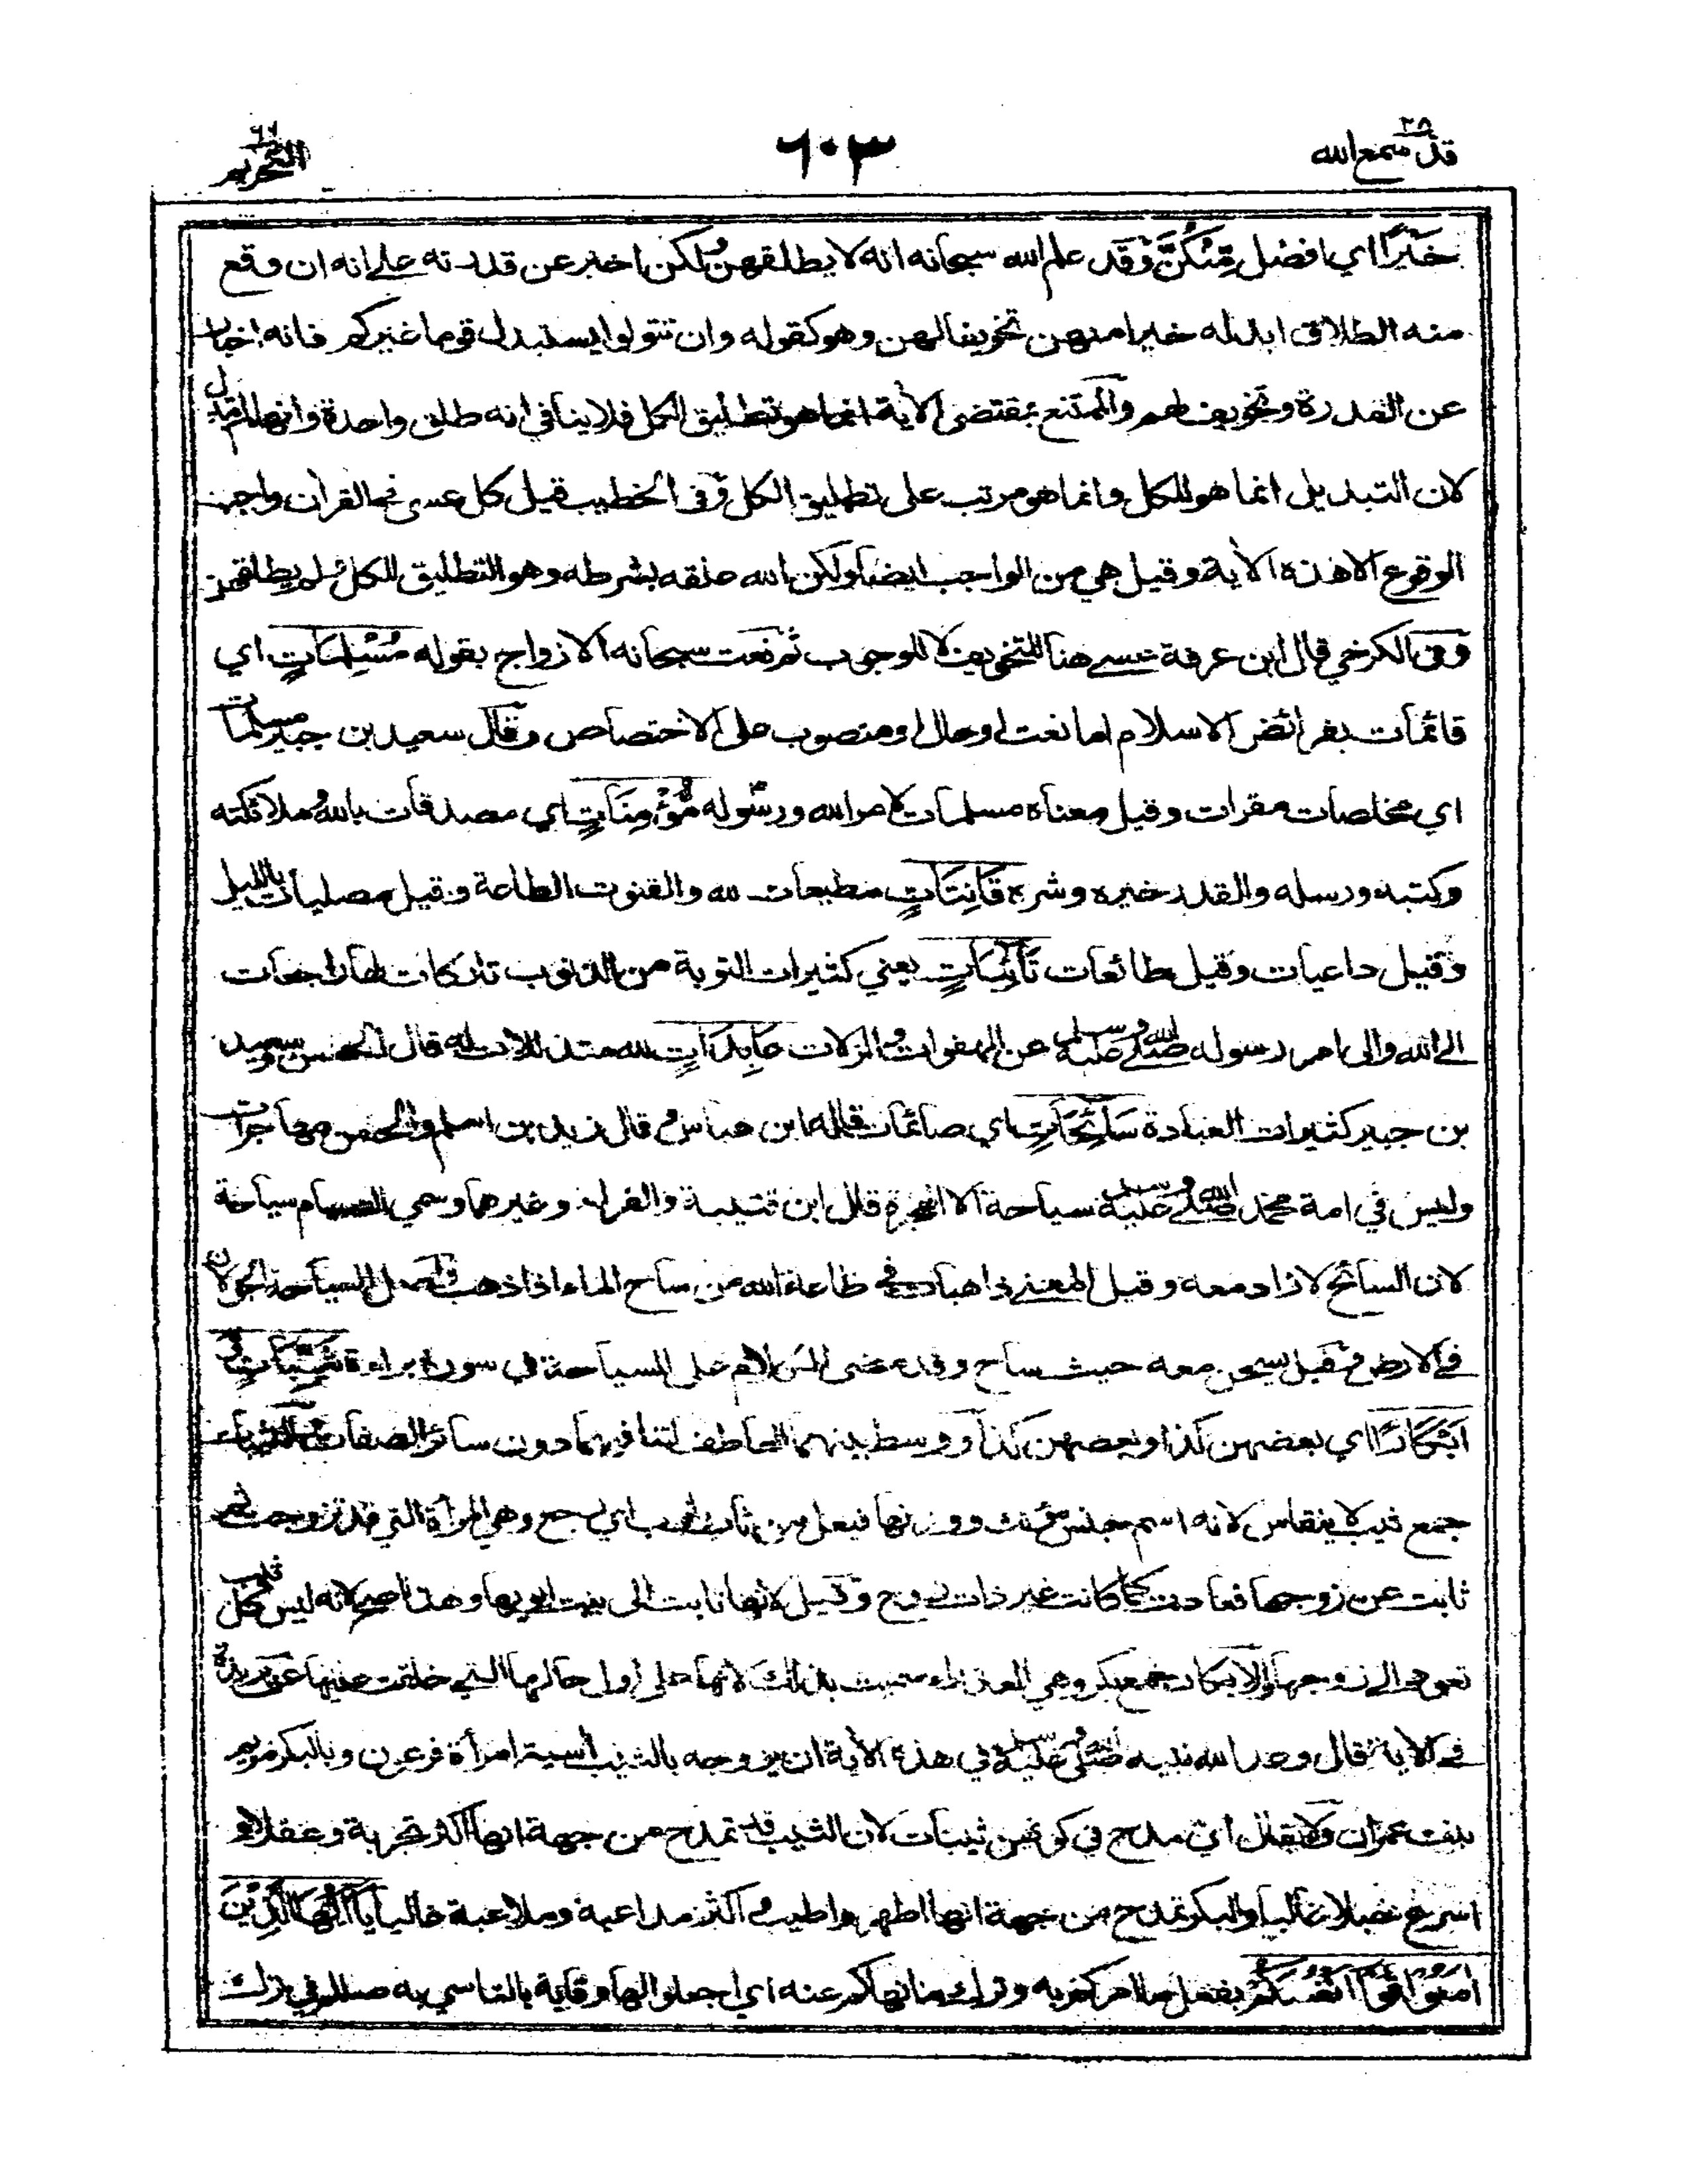 ٢٨
قد سمع الله
٦٠٣
٦٦
التحريم
خَيْرًا اي افضل مِّنْكُنَّ وقد علم الله سبحانه انه لا يطلقهن ولكن اخبر عن قدرته على انه ان وقع
منه الطلاق ابدله خيرا منهن تخويفا لهن وهو كقوله وان تتولوا يستبدل قوما غيركم فانه اخبار
عن القدرة وتخويف لهم والممتنع بمقتضى الأية انما هو تطليق الكل فلا ينافي انه طلق واحدة وانها لم تبدل
لان التبديل انما هو للكل وانما هو مرتب على تطليق الكل وفي الخطيب قيل كل عسى في القرأن واجب
الوقوع الا هذه الأية وقيل هي من الواجب ايضا ولكن الله علقه بشرطه وهو التطليق للكل ولم يطلقهن
وفي الكرخي قال ابن عرفة عسى هنا للتخويف لا للوجوب ثم نعت سبحانه الازواج بقوله مُسْلِمَاتٍ اي
قائمات بفرائض الاسلام اما نعت او حال او منصوب على الاختصاص وقال سعيد بن جبير مسلمات
اي مخلصات مقرات وقيل معناه مسلمات لامر الله ورسوله مُؤْمِنَاتٍ اي مصدقات بالله وملائكته
وكتبه ورسله والقدر خيره وشره قَانِتَاتٍ مطيعات لله والقنوت الطاعة وقيل مصليات بالليل
وقيل داعيات وقيل طائعات تَائِبَاتٍ يعني كثيرات التوبة من الذنوب تاركات لها راجعات
الى الله والى امر رسوله صلى الله عليه وسلم عن الهفوات والزلات عَابِدَاتٍ لله متذللات له قال الحسن وسعيد
بن جبير كثيرات العبادة سَائِحَاتٍ اي صائمات قاله ابن عباس وقال زيد بن اسلم والحسن مهاجرات
وليس في امة محمد صلى الله عليه وسلم سياحة الا الهجرة قال ابن قتيبة والفراء وغيرهما وسمي الصيام سياحة
لان السائح لا زاد معه وقيل المعنى ذاهبات في طاعة الله من ساح الماء اذا ذهب واصل السياحة الجولان
في الارض وقيل يسحن معه حيث ساح وقد مضى الكلام على السياحة في سورة براءة ثَيِّبَاتٍ وَّ
اَبْكَارًا اي بعضهن كذا وبعضهن كذا ووسط بينهما العاطف لتنافيهما دون سائر الصفات والثيبات
جمع ثيب لا ينقاس لانه اسم جنس مؤنث ووزنها فيعل من ثاب يثوب اي رجع وهي المرأة التي قد تزوجت ثم
ثابت عن زوجها فعادت كما كانت غير ذات زوج وقيل لانها ثابت الى بيت ابويها وهذا اصح لانه ليس كل ثيب
تعود الى زوجها والابكار جمع بكر وهي العذراء سميت بذلك لانها على اول حالها التي خلقت عليها عن بريدة
في الأية قال وعد الله نبيه صلى الله عليه وسلم في هذه الأية ان يزوجه بالثيب أسية امرأة فرعون وبالبكر مريم
بنت عمران ولا يقال اي مدح في كونهن ثيبات لان الثيب قد تمدح من جهة انها اكثر تجربة وعقلا و
اسرع حبلا غالبا والبكر تمدح من جهة انها اطهر واطيب واكثر مداعبة وملاعبة غالبا يَا أَيُّهَا الَّذِيْنَ
اٰمَنُوْا قُوْا اَنْفُسَكُمْ بفعل ما امركم به وترك ما نهاكم عنه اي اجعلوا لها وقاية بالتاسي به صلى الله في ترك